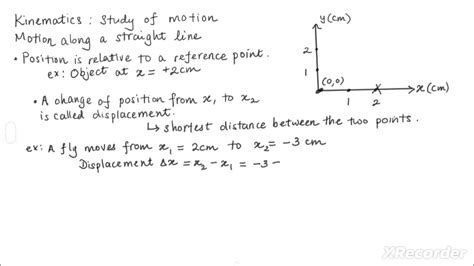 Kinematics : Study of motion
Motion along a straight line
• Position is relative to a reference point.
ex: Object at x = +2cm
• A change of position from x₁ to x₂
is called displacement.
↳ shortest distance between the two points.
ex: A fly moves from x₁ = 2cm to x₂ = -3 cm
Displacement Δx = x₂ - x₁ = -3 -
y(cm)
2
1
(0,0)
1
2
x(cm)
XRecorder